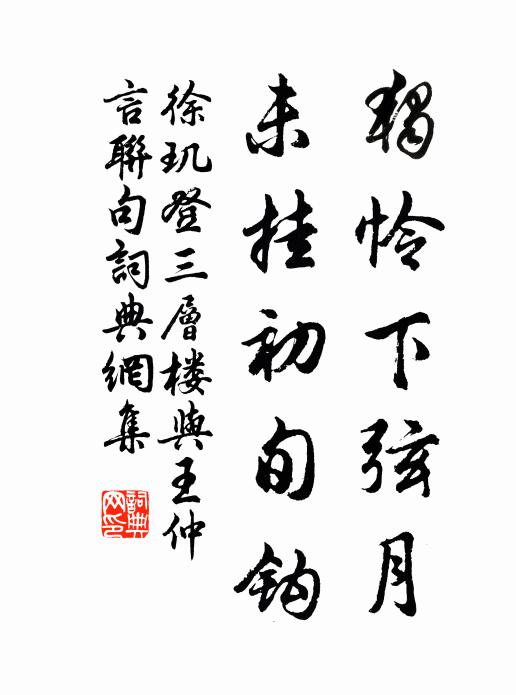 獨怜下弦月
未挂初旬鈎
徐玑登三層楼與王仲
言聯句詞典網集
詞典網印